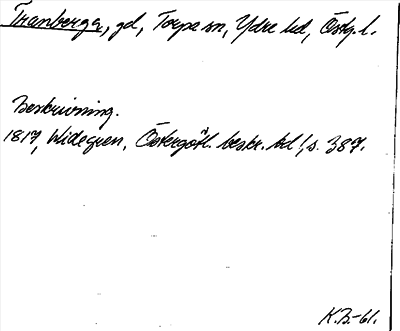 Tranberga, gd, Torpa sn, Ydre hd, Östg. l.
Beskrivning.
1817, Widegren, Östergötl. beskr. bd 1, s. 387.
K.B-61.